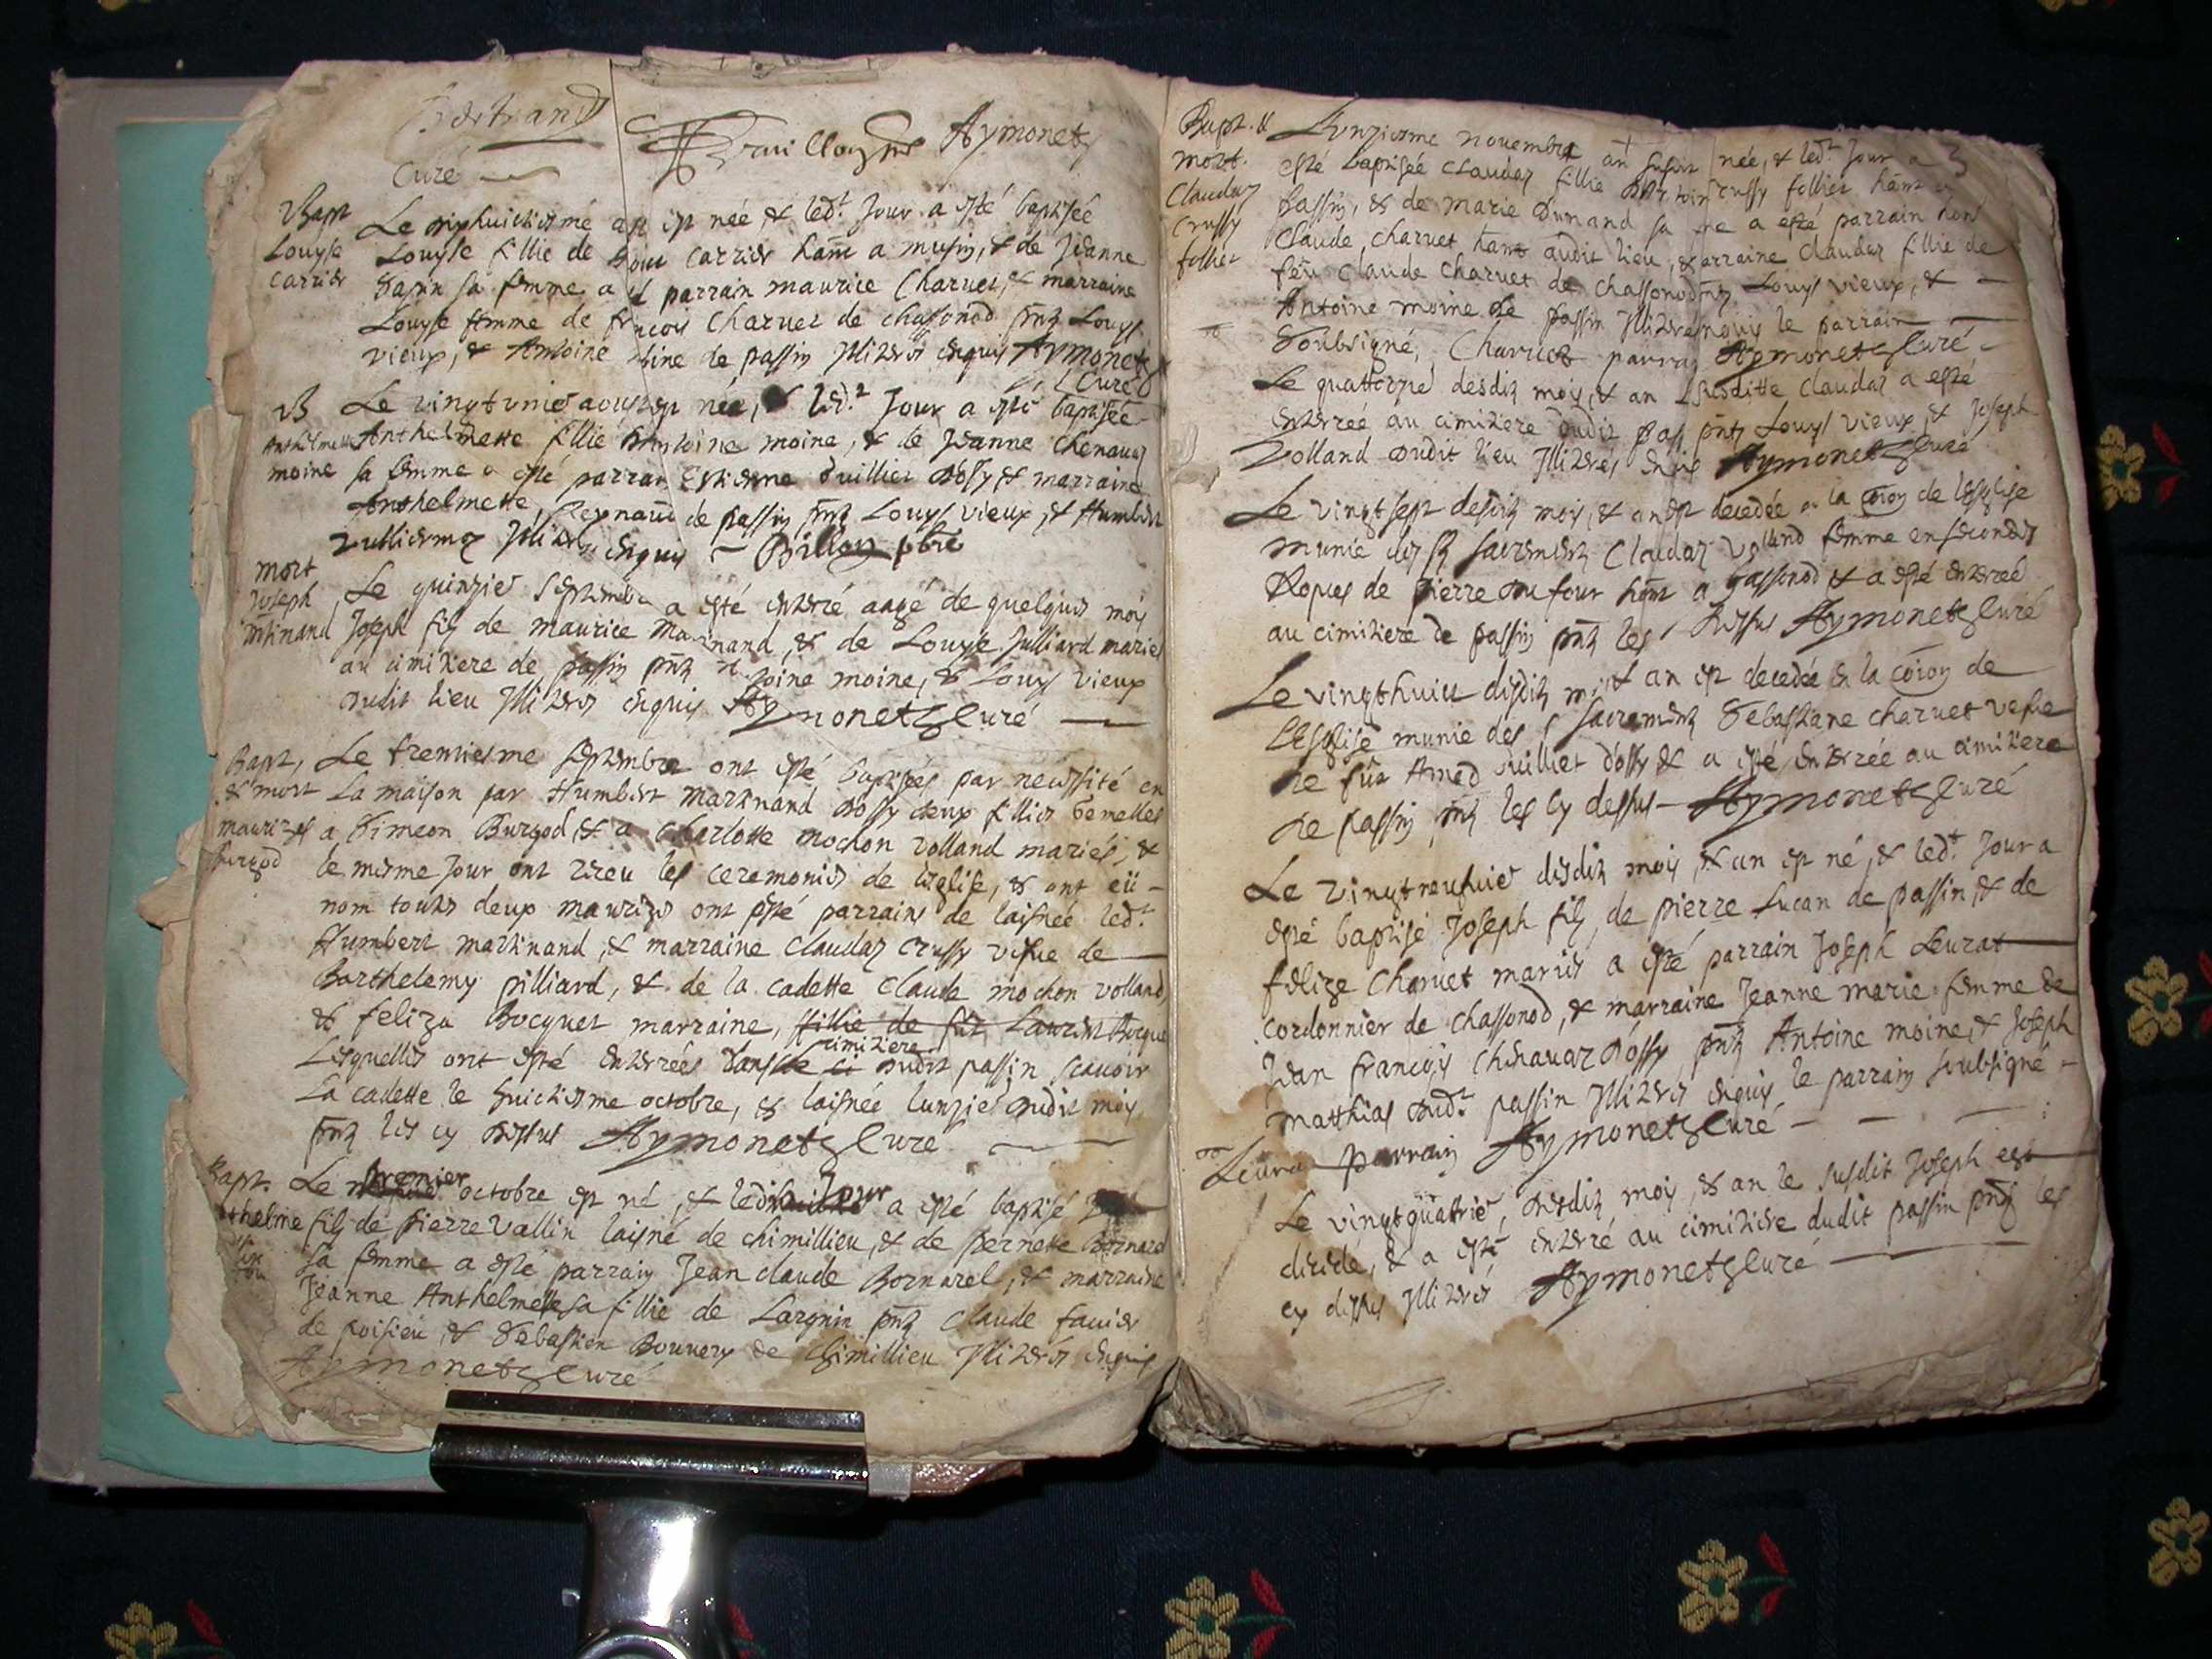 Bertrand
Curé
Aymonetz
Bapt
Louyse
carrier
Le dixhuictiesmé est née & led.t Jour a esté baptisée
Louyse fillie de carrier ham a musin, & de Jeanne
Sapin sa femme a parrain maurice Charuet, & marraine
Louyse femme de françois Charuet de chassonod pntz Louys
vieux, & Antoine moine de passin Illiterés enquis Aymonetz
Curé
B
Anthelmette
moine
Le vingtunie aoust est née, & led.t Jour a esté baptisée
Anthelmette fillie d'Antoine moine, & de Jeanne chenauaz
sa femme a esté parrain Estienne Juilliet d'ossy & marraine
Anthelmette Reynaud de passin pntz Louys vieux, & Humbert
enquis Billon pbre
mort
Joseph
martinand
Le quinzie Septembre a esté enterré aagé de quelques mois
Joseph filz de maurice martinand, & de Louyse Julliard mariés
au cimitiere de passin pntz Antoine moine, & Louys vieux
dudit lieu Illiterés enquis Aymonetz Curé
Bapt,
& mort
maurizes
burgod
Le trentiesme septembre ont esté baptisées par necessité en
La maison par Humbert martinand d'ossy deux fillies Gemelles
a Simeon Burgod, & a Charlotte mochon volland mariés, &
le mesme Jour ont receu les ceremonies de l'eglise, & ont eü
nom toutes deux maurizes ont esté parrains de laisnée led.t
Humbert martinand, & marraine claudaz Crussy vefue de
Barthelemy pilliard, & de la cadette Claude mochon volland,
& feliza Bocquet marraine, fillie de fût Laurent Bocquet
Lesquelles ont esté enterrées dans le ci cimitiere dudit passin scauoir
La cadette le huictiesme octobre, & laisnée lunzie dudit mois
pntz les cy dessus Aymonetz Curé
Bapt.
Le premier octobre est né, & ledit Jour a esté baptisé
filz de pierre vallin laisné de chimillieu, & de pernette Bornarel
sa femme a esté parrain Jean claude Bornarel, & marraine
Jeanne Anthelmette sa fillie de Largnin pntz Claude fauier
de poisieu, & Sebastien Bouuery de Chimillieu Illiterés enquis
Aymonetz Curé
Bapt. &
mort.
Claudaz
Crussy
folliet
3
L'unziesme nouembre an susdit née, & led.t Jour a
esté baptisée Claudaz fillie Crussy folliet hant a
passin, & de marie Dunand sa a esté parrain hon
Claude charuet hant audit lieu, & marraine Claudaz fillie de
feu Claude Charuet de chassonod pntz Louys vieux, &
Antoine moine de passin Illiterés enquis le parrain
Soubsigné, Charuet parrain Aymonetz Curé
Le quattorzie desdits mois, & an susditte Claudaz a esté
enterrée au cimitiere dudit passin pntz Louys vieux, & Joseph
Volland dudit lieu Illiterés enquis Aymonetz Curé
Le vingtsept desditz mois, & an est decedée en la coion de l'Esglise
munie des Sts sacrementz Claudaz Volland femme en secondes
Nopces de pierre Dufour hant a chassonod & a esté enterrée
au cimitiere de passin pntz les dessus Aymonetz Curé
Le vingthuict desditz mois & an est decedée en la coion de
l'Esglise munie des sacrementz Sebastiane charuet vefue
de fût Amed Juilliet d'ossy & a esté enterrée au cimitiere
de passin pntz les cy dessus Aymonetz Curé
Le vingtneufuie desditz mois, & an est né, & led.t Jour a
esté baptisé Joseph filz de pierre Lucan de passin, & de
felize Charuet mariés a esté parrain Joseph Leurat
cordonnier de chassonod, & marraine Jeanne marie femme de
Jean françois Chenauaz d'ossy pntz Antoine moine, & Joseph
matthias dud.t passin Illiterés enquis le parrain soubsigné
Leurat parrain Aymonetz Curé
Le vingtquatrie, desditz mois, & an le susdit Joseph est
decede, & a esté enterré au cimitiere dudit passin pntz les
cy dessus Illiterés Aymonetz Curé